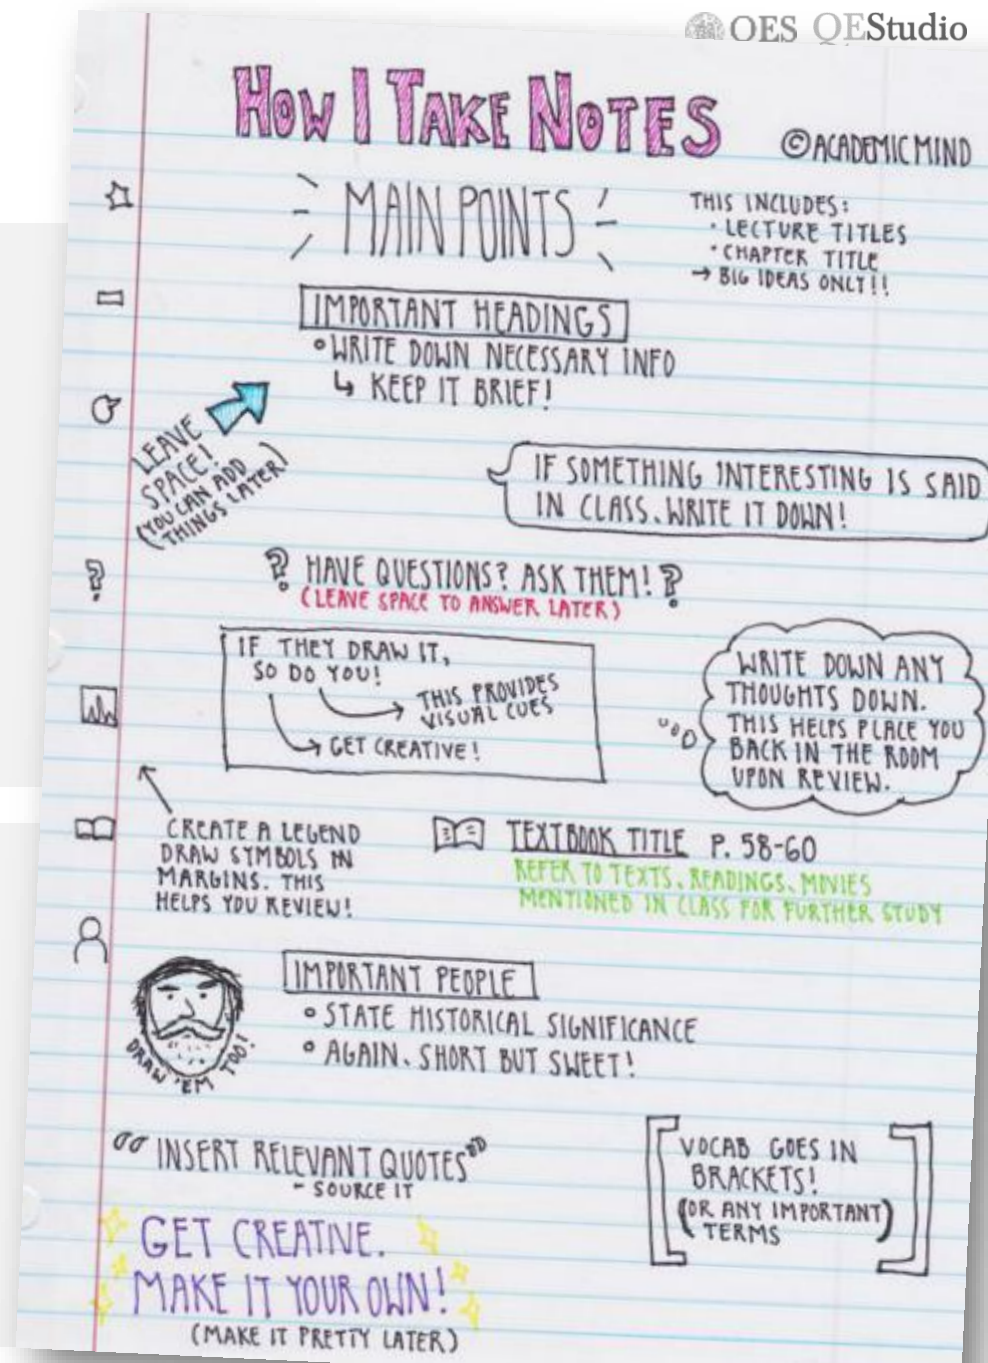 OES QEStudio
HOW I TAKE NOTES
© ACADEMIC MIND
MAIN POINTS
THIS INCLUDES:
· LECTURE TITLES
· CHAPTER TITLE
→ BIG IDEAS ONLY!!
IMPORTANT HEADINGS
• WRITE DOWN NECESSARY INFO
↳ KEEP IT BRIEF!
LEAVE
SPACE!
(YOU CAN ADD
THINGS LATER)
IF SOMETHING INTERESTING IS SAID
IN CLASS, WRITE IT DOWN!
? HAVE QUESTIONS? ASK THEM! ?
(LEAVE SPACE TO ANSWER LATER)
?
IF THEY DRAW IT,
SO DO YOU!
THIS PROVIDES
VISUAL CUES
GET CREATIVE!
WRITE DOWN ANY
THOUGHTS DOWN.
THIS HELPS PLACE YOU
BACK IN THE ROOM
UPON REVIEW.
CREATE A LEGEND
DRAW SYMBOLS IN
MARGINS. THIS
HELPS YOU REVIEW!
TEXTBOOK TITLE P. 58-60
REFER TO TEXTS, READINGS, MOVIES
MENTIONED IN CLASS FOR FURTHER STUDY
IMPORTANT PEOPLE
• STATE HISTORICAL SIGNIFICANCE
• AGAIN, SHORT BUT SWEET!
DRAW 'EM TOO!
"INSERT RELEVANT QUOTES"
- SOURCE IT
[VOCAB GOES IN
BRACKETS!
(OR ANY IMPORTANT)
TERMS]
GET CREATIVE.
MAKE IT YOUR OWN!
(MAKE IT PRETTY LATER)